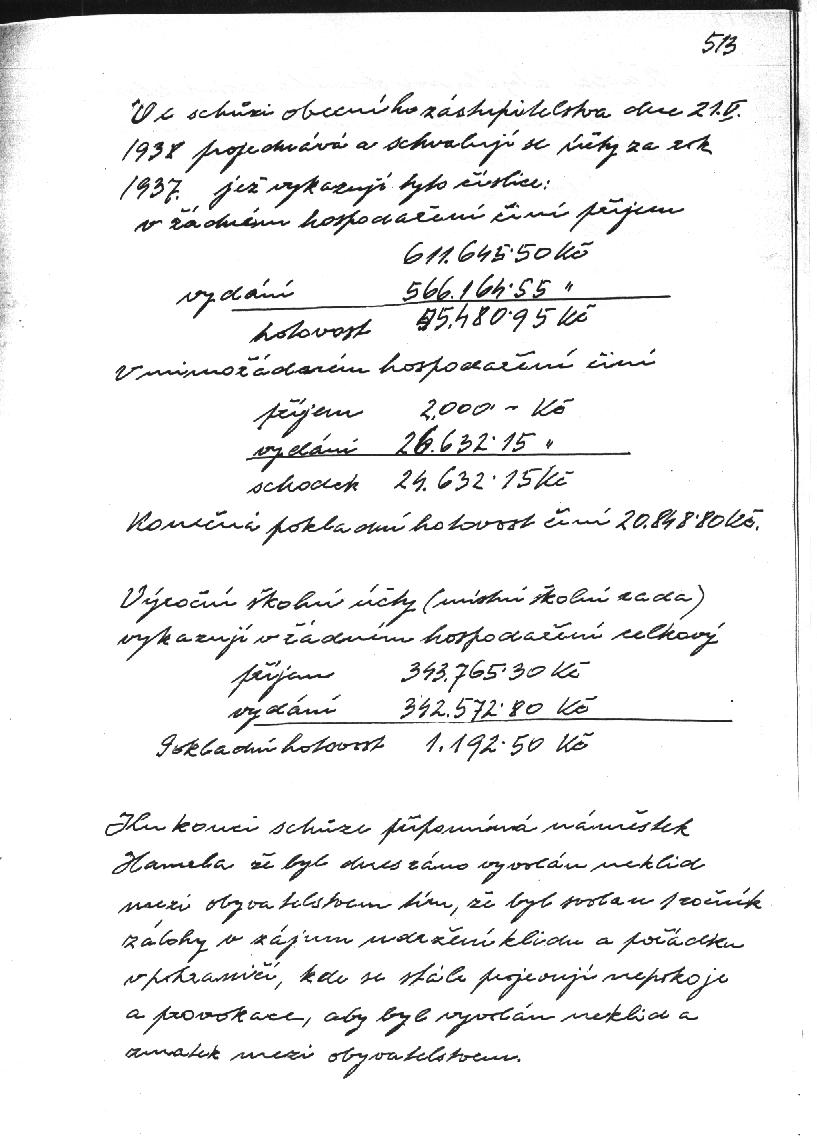 513
Ve schůzi obecního zastupitelstva dne 21.V.
1938 projednává a schvalují se účty za rok
1937. jež vykazují tyto číslice:
v řádném hospodaření činí příjem
611.645·50 Kč
vydání 566.164·55 "
hotovost 45.480·95 Kč
V mimořádném hospodaření činí
příjem 2.000·- Kč
vydání 26.632·15 "
schodek 24.632·15 Kč
Konečná pokladní hotovost činí 20.848·80 Kč.
Výroční školní účty (místní škol­ní rada)
vykazují v řádném hospodaření celkový
příjem 343.765·30 Kč
vydání 342.572·80 Kč
Pokladní hotovost 1.192·50 Kč
Ku konci schůze připomíná náměstek
Hamela že byl dnes ráno vyvolán neklid
mezi obyvatelstvem tím, že byl svolán 1 ročník
zálohy v zájmu udržení klidu a pořádku
v pohraničí, kde se stále projevují nepokoje
a provokace, aby byl vyvolán neklid a
zmatek mezi obyvatelstvem.